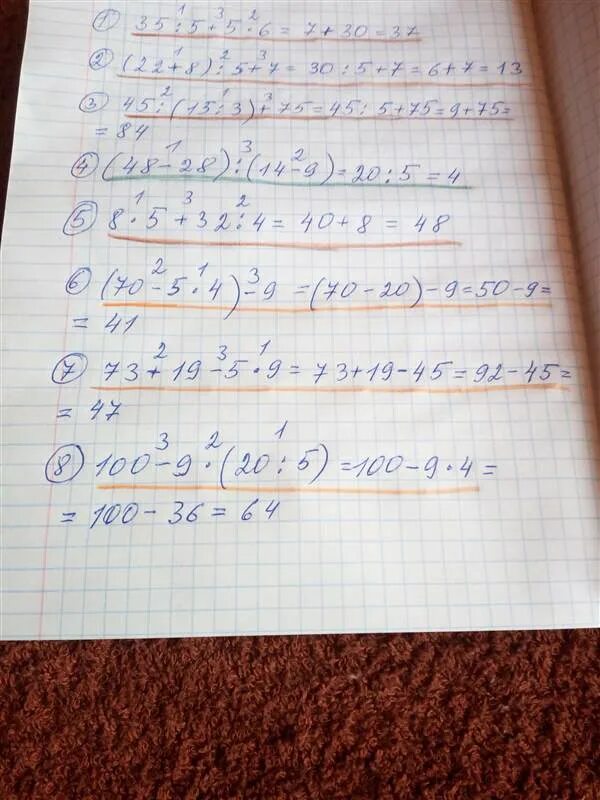 1) 35 : 5 + 5 · 6 = 7 + 30 = 37
2) (22 + 8) : 5 + 7 = 30 : 5 + 7 = 6 + 7 = 13
3) 45 : (15 : 3) + 75 = 45 : 5 + 75 = 9 + 75 =
= 84
4) (48 - 28) : (14 - 9) = 20 : 5 = 4
5) 8 · 5 + 32 : 4 = 40 + 8 = 48
6) (70 - 5 · 4) - 9 = (70 - 20) - 9 = 50 - 9 =
= 41
7) 73 + 19 - 5 · 9 = 73 + 19 - 45 = 92 - 45 =
= 47
8) 100 - 9 · (20 : 5) = 100 - 9 · 4 =
= 100 - 36 = 64